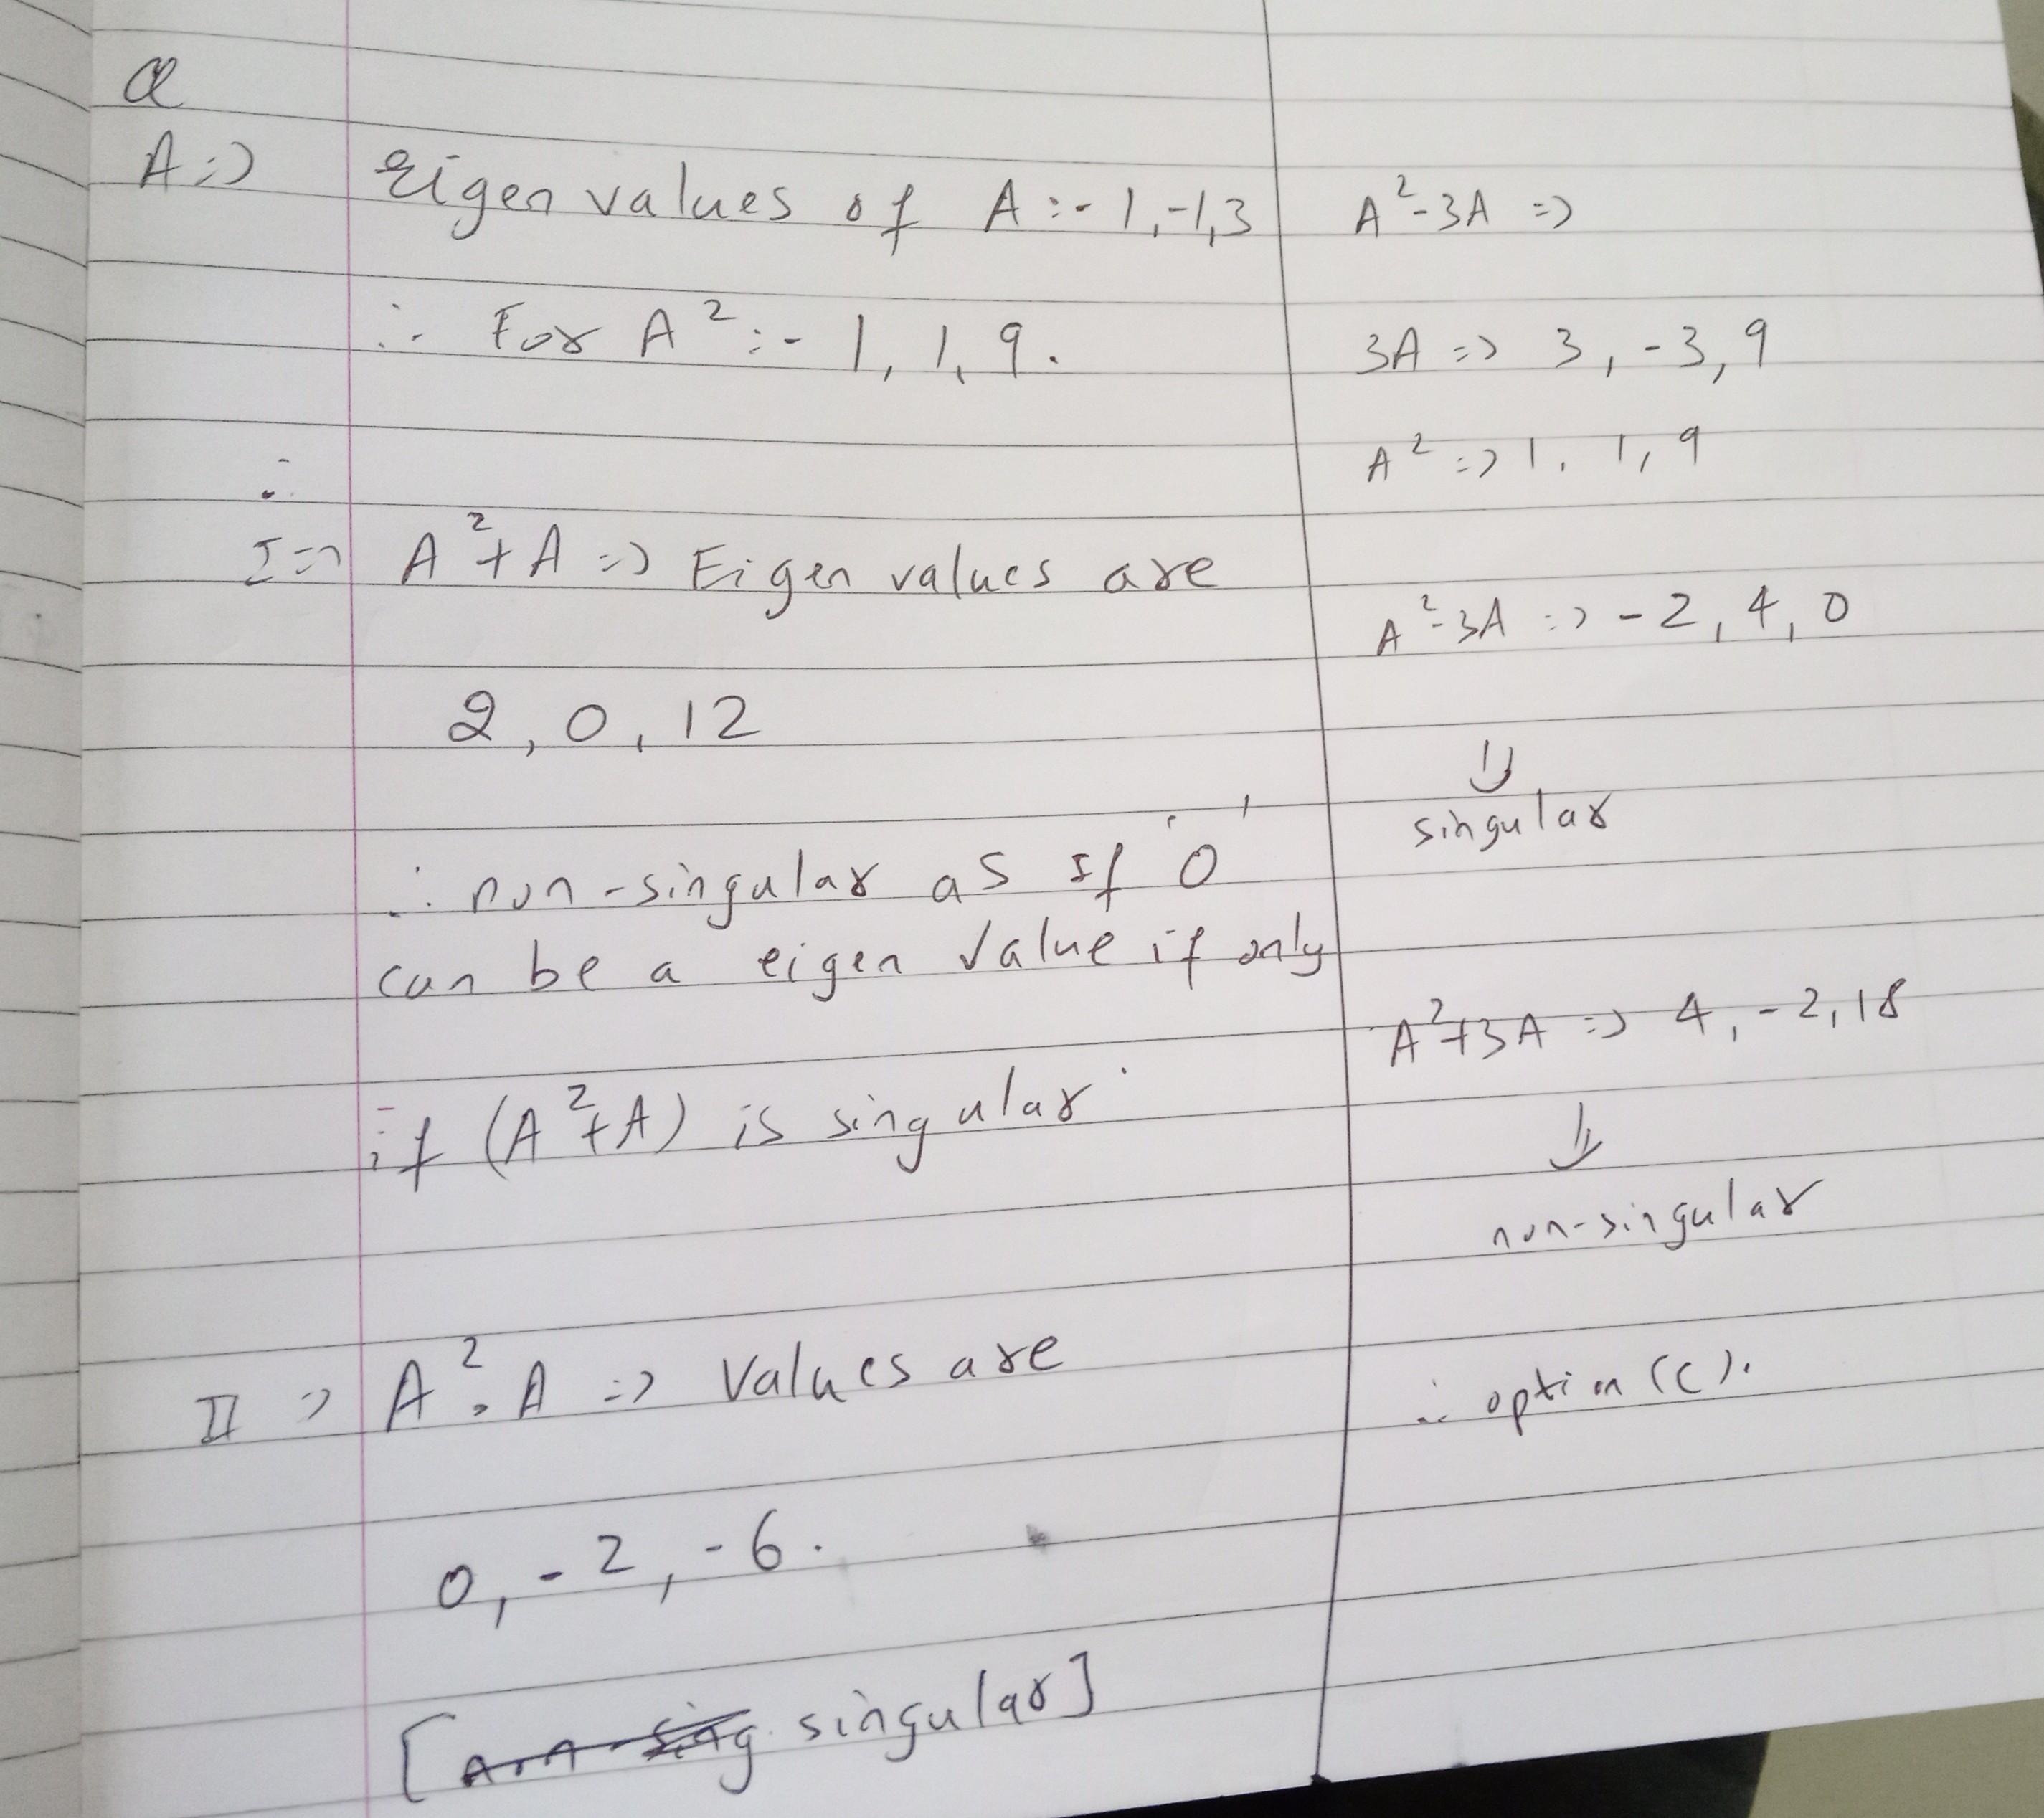 Q
A:⇒ Eigen values of A :- 1, -1, 3
∴ For A² :- 1, 1, 9.
∴
I ⇒ A² + A ⇒ Eigen values are
2, 0, 12
∴ non-singular as if '0'
can be a eigen value if only
if (A² + A) is singular
II ⇒ A² - A ⇒ Values are
0, -2, -6.
[singular]
A² - 3A ⇒
3A ⇒ 3, -3, 9
A² ⇒ 1, 1, 9
A² - 3A ⇒ -2, 4, 0
⇓
singular
A² + 3A ⇒ 4, -2, 18
⇓
non-singular
∴ option (c).